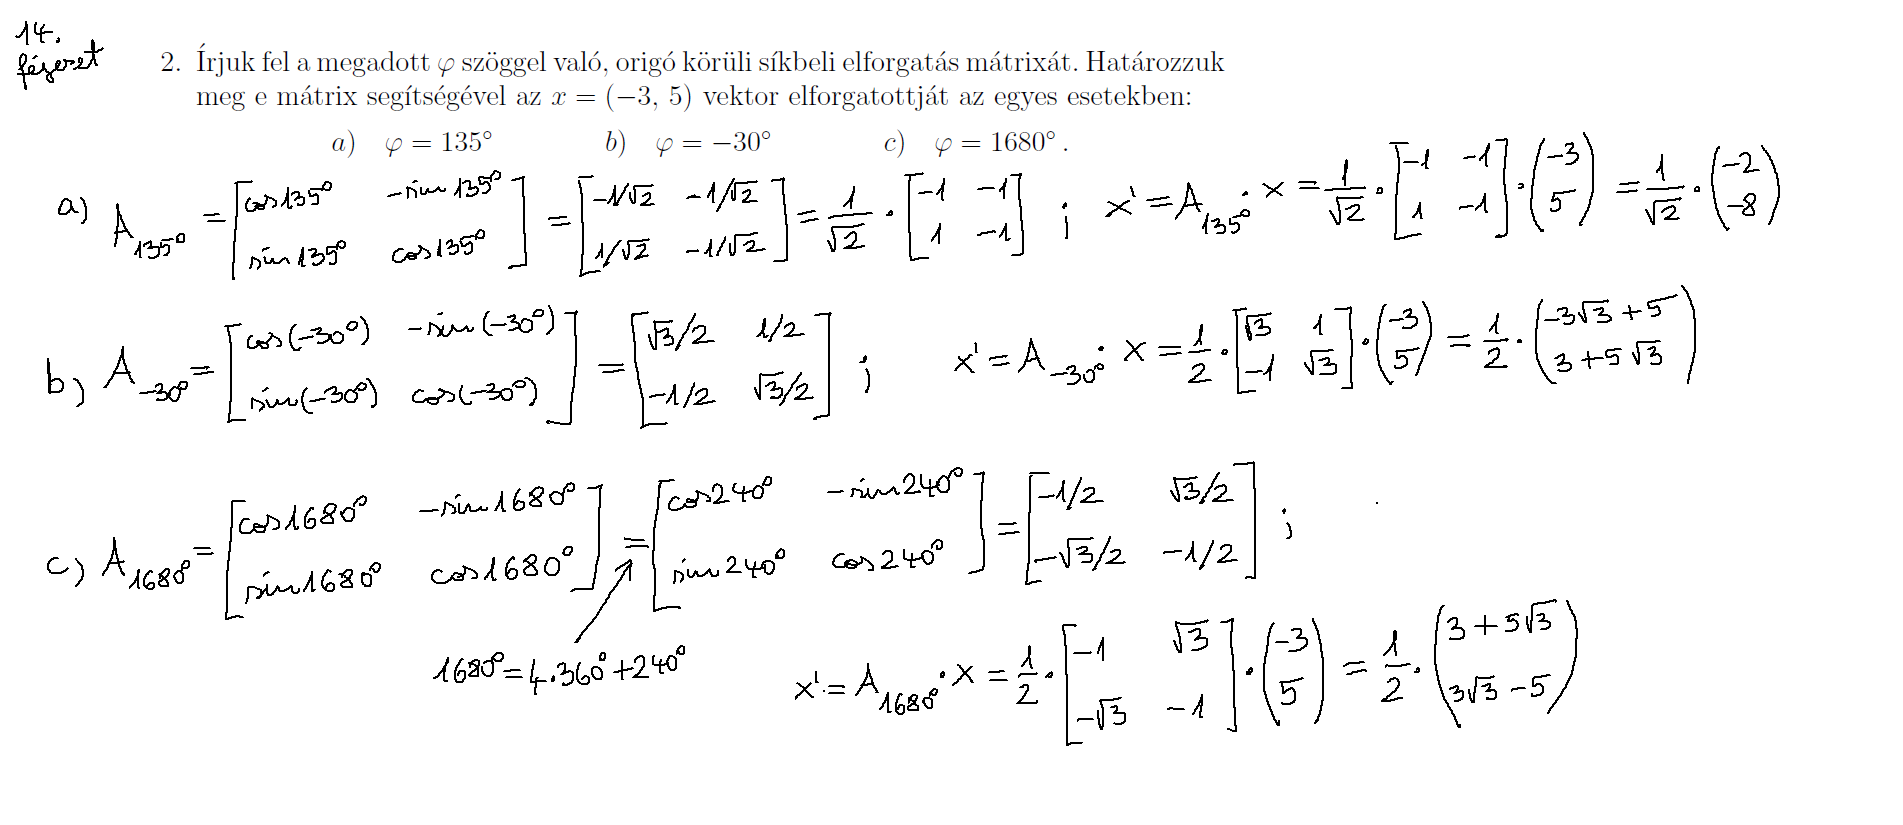 14.
füzeret
2. Írjuk fel a megadott φ szöggel való, origó körüli síkbeli elforgatás mátrixát. Határozzuk
meg e mátrix segítségével az x = (−3, 5) vektor elforgatottját az egyes esetekben:
a) φ = 135° b) φ = −30° c) φ = 1680° .
a) A_{135°} = [cos135° −sin135°; sin135° cos135°] = [−1/√2 −1/√2; 1/√2 −1/√2] = 1/√2 · [−1 −1; 1 −1] ; x' = A_{135°} · x = 1/√2 · [−1 −1; 1 −1] · (−3; 5) = 1/√2 · (−2; −8)
b) A_{−30°} = [cos(−30°) −sin(−30°); sin(−30°) cos(−30°)] = [√3/2 1/2; −1/2 √3/2] ; x' = A_{−30°} · x = 1/2 · [√3 1; −1 √3] · (−3; 5) = 1/2 · (−3√3 + 5; 3 + 5√3)
c) A_{1680°} = [cos1680° −sin1680°; sin1680° cos1680°] = [cos240° −sin240°; sin240° cos240°] = [−1/2 √3/2; −√3/2 −1/2] ;
1680° = 4·360° + 240°
x' = A_{1680°} · x = 1/2 · [−1 √3; −√3 −1] · (−3; 5) = 1/2 · (3 + 5√3; 3√3 − 5)